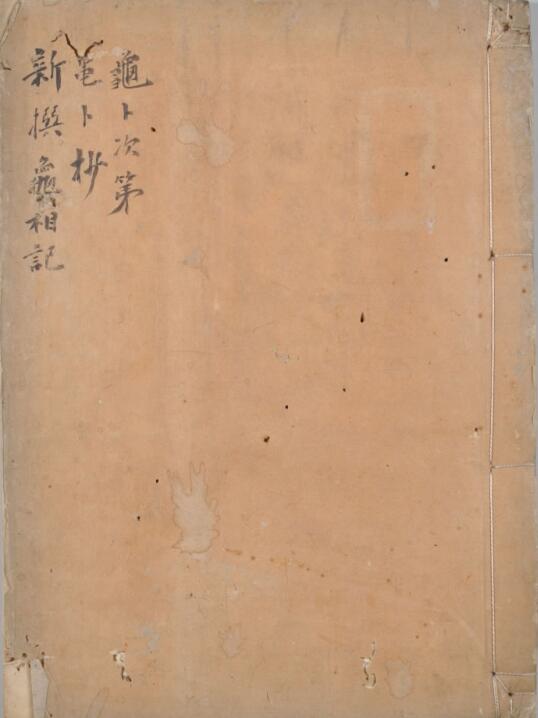 龜卜次第
亀卜抄
新撰龜相記